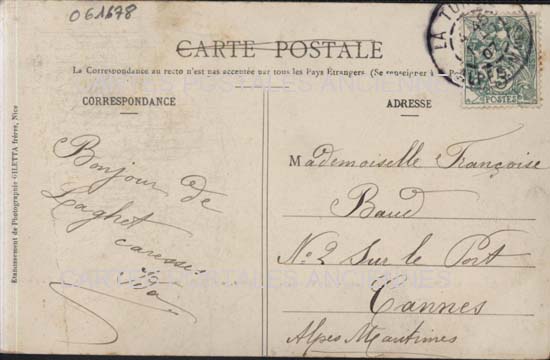 061678
CARTE POSTALE
La Correspondance au recto n'est pas acceptée par tous les Pays Étrangers. (Se renseigner à
CORRESPONDANCE
ADRESSE
Bonjour de
Laghet
caresse
Mademoiselle Françoise
Baud
No 2 Sur le Port
Cannes
Alpes Maritimes
Etablissement de Photographie GILETTA frères, Nice
LA TU
07
POSTES
CARTES POSTALES ANCIENNES
CARTES POSTALES ANCIENNES